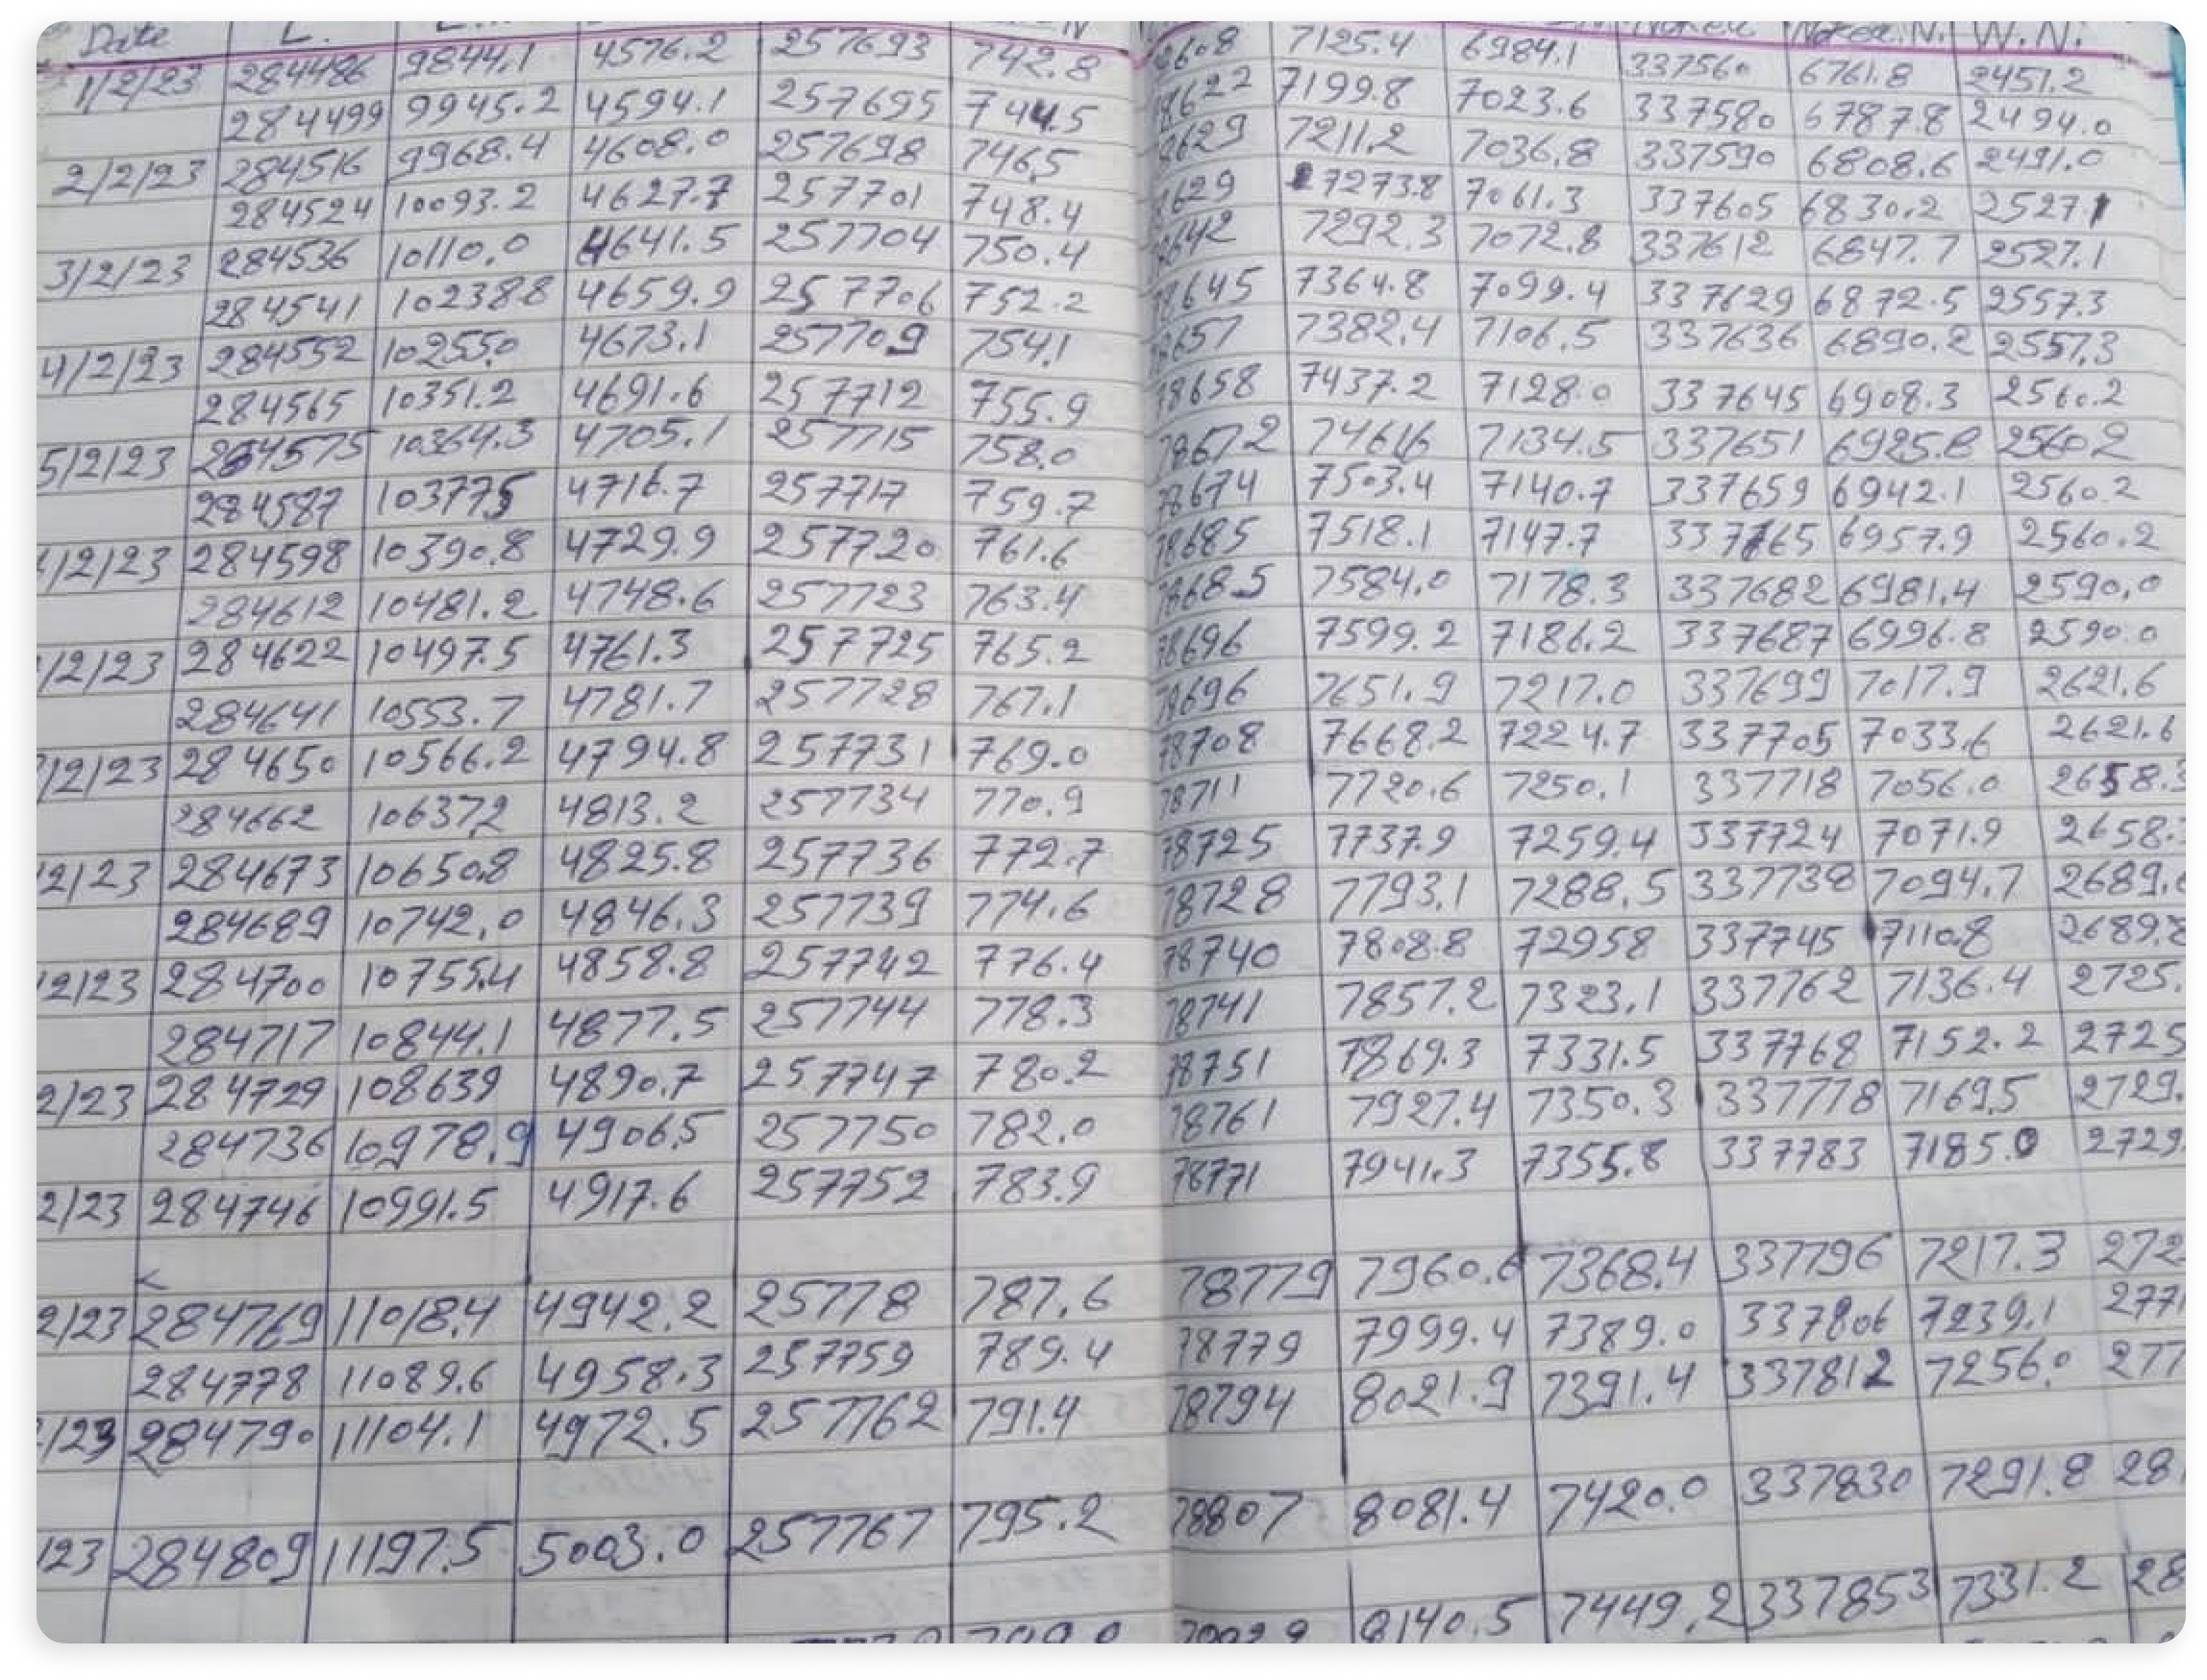 Date L. W.N.
1/2/23 284486 9844.1 4576.2 257693 742.8 7125.4 6984.1 337560 6761.8 2451.2
284499 9945.2 4594.1 257695 744.5 7199.8 7023.6 337580 6787.8 2494.0
2/2/23 284516 9968.4 4608.0 257698 746.5 7211.2 7036.8 337590 6808.6 2491.0
284524 10093.2 4627.7 257701 748.4 7273.8 7061.3 337605 6830.2 2527.1
3/2/23 284536 10110.0 4641.5 257704 750.4 7292.3 7072.8 337612 6847.7 2527.1
284541 10238.8 4659.9 257706 752.2 78645 7364.8 7099.4 337629 6872.5 2557.3
4/2/23 284552 10255.0 4673.1 257709 754.1 7382.4 7106.5 337636 6890.2 2557.3
284565 10351.2 4691.6 257712 755.9 78658 7437.2 7128.0 337645 6908.3 2560.2
5/2/23 284575 10364.3 4705.1 257715 758.0 78672 7461.6 7134.5 337651 6925.8 2560.2
284587 10377.5 4716.7 257717 759.7 78674 7503.4 7140.7 337659 6942.1 2560.2
/2/23 284598 10390.8 4729.9 257720 761.6 78685 7518.1 7147.7 337665 6957.9 2560.2
284612 10481.2 4748.6 257723 763.4 78685 7584.0 7178.3 337682 6981.4 2590.0
/2/23 284622 10497.5 4761.3 257725 765.2 78696 7599.2 7186.2 337687 6996.8 2590.0
284641 10553.7 4781.7 257728 767.1 78696 7651.9 7217.0 337699 7017.9 2621.6
/2/23 284650 10566.2 4794.8 257731 769.0 78708 7668.2 7224.7 337705 7033.6 2621.6
284662 10637.2 4813.2 257734 770.9 78711 7720.6 7250.1 337718 7056.0 2658.3
/2/23 284673 10650.8 4825.8 257736 772.7 78725 7737.9 7259.4 337724 7071.9 2658.
284689 10742.0 4846.3 257739 774.6 78728 7793.1 7288.5 337738 7094.7 2689.
/2/23 284700 10755.4 4858.8 257742 776.4 78740 7808.8 7295.8 337745 7110.8 2689.8
284717 10844.1 4877.5 257744 778.3 78741 7857.2 7323.1 337762 7136.4 2725.
2/23 284729 10863.9 4890.7 257747 780.2 78751 7869.3 7331.5 337768 7152.2 2725
284736 10978.9 4906.5 257750 782.0 78761 7927.4 7350.3 337778 7169.5 2729.
2/23 284746 10991.5 4917.6 257752 783.9 78771 7941.3 7355.8 337783 7185.0 2729.
2/23 284769 11018.4 4942.2 25778 787.6 78779 7960.6 7368.4 337796 7217.3 272
284778 11089.6 4958.3 257759 789.4 78779 7999.4 7389.0 337806 7239.1 277
/23 284790 11104.1 4972.5 257762 791.4 78794 8021.9 7391.4 337812 7256.0 277
/23 284809 11197.5 5003.0 257767 795.2 78807 8081.4 7420.0 337830 7291.8 28
8140.5 7449.2 337853 7331.2 28